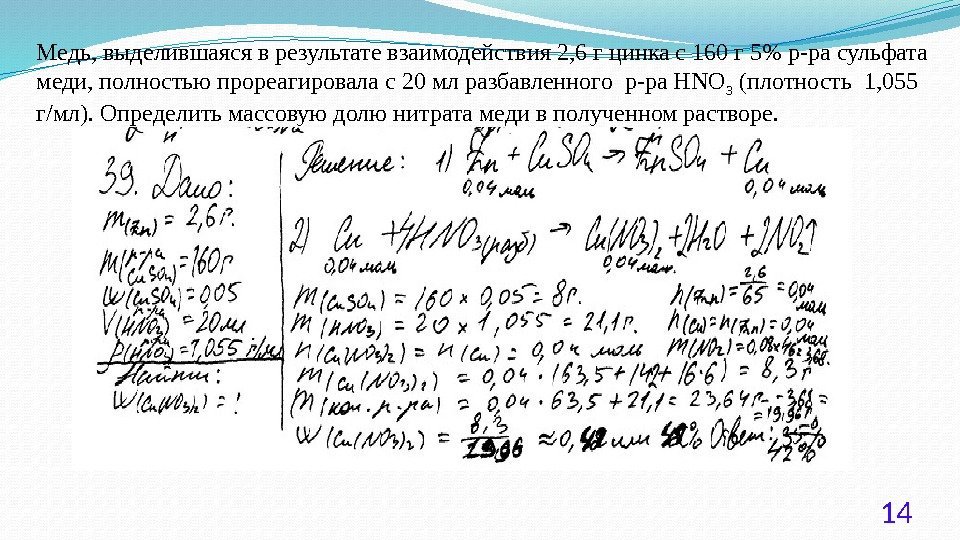 Медь, выделившаяся в результате взаимодействия 2,6 г цинка с 160 г 5% р-ра сульфата
меди, полностью прореагировала с 20 мл разбавленного р-ра HNO₃ (плотность 1,055
г/мл). Определить массовую долю нитрата меди в полученном растворе.
39. Дано:
m(Zn) = 2,6 г.
m(р-ра CuSO₄) = 160 г
W(CuSO₄) = 0,05
V(р-ра HNO₃) = 20 мл
ρ(р-ра HNO₃) = 1,055 г/мл
Найти:
W(Cu(NO₃)₂) = ?
Решение: 1) Zn + CuSO₄ → ZnSO₄ + Cu
0,04 моль 0,04 моль
2) Cu + 4HNO₃(разб) → Cu(NO₃)₂ + 2H₂O + 2NO₂↑
0,04 моль 0,04 моль
m(CuSO₄) = 160 × 0,05 = 8 г. n(Zn) = 2,6/65 = 0,04 моль
m(HNO₃) = 20 × 1,055 = 21,1 г. n(Cu) = n(Zn) = 0,04 моль
n(Cu(NO₃)₂) = n(Cu) = 0,04 моль m(NO₂) = 0,08×46 = 3,68г.
m(Cu(NO₃)₂) = 0,04 · (63,5 + 14·2 + 16·6) = 8,3 г
m(кон. р-ра) = 0,04 · 63,5 + 21,1 = 23,64 г - 3,68 =
= 19,96 г
W(Cu(NO₃)₂) = 8,3/19,96 ≈ 0,42 или 42% Ответ:
42%
14